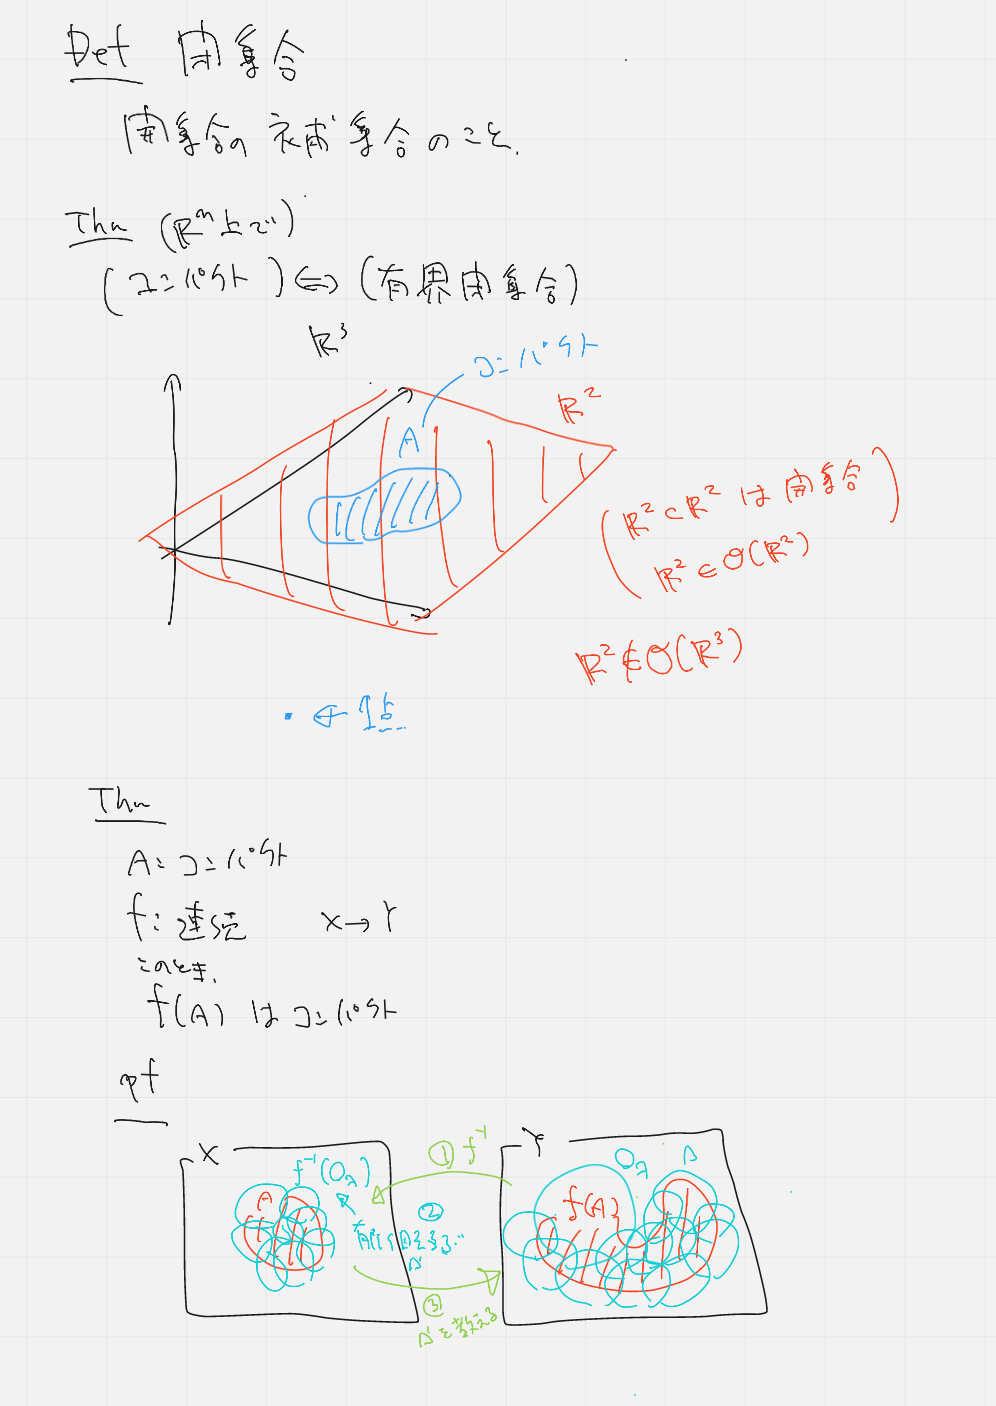 Def 閉集合
開集合の補集合のこと.
Thm (ℝⁿ上で)
(コンパクト) ⇔ (有界閉集合)
ℝ³
コンパクト
ℝ²
A
(ℝ²⊂ℝ² は開集合
ℝ²∈O(ℝ²))
ℝ²∉O(ℝ³)
・← 1点
Thm
A:コンパクト
f:連続 X→Y
このとき,
f(A) はコンパクト
pf
X
f⁻¹(O_λ)
A
① f⁻¹
②
有限個
③
Δ'を考える
Y
O_λ
Δ
f(A)